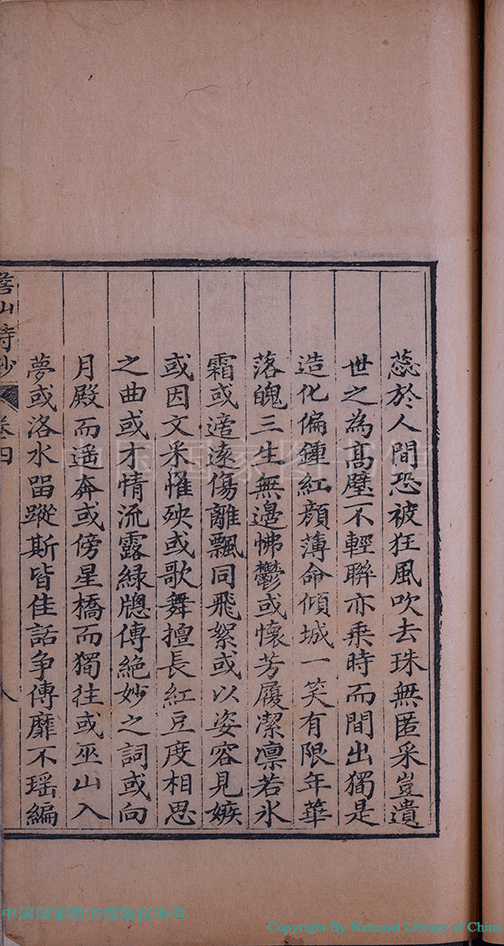 蕊於人間恐被狂風吹去珠無匿采豈遺
世之為高璧不輕聨亦乗時而間出獨是
造化偏鍾紅顔薄命傾城一笑有限年華
落魄三生無邊怫鬱或懷芳履潔凛若氷
霜或遠傷離飄同飛絮或以姿容見嫉
或因文采惟殃或歌舞擅長紅豆度相思
之曲或才情流露緑牕傳絶妙之詞或向
月殿而遥奔或傍星橋而獨往或巫山入
夢或洛水畱蹤斯皆佳話争傳靡不瑶編
山詩鈔
卷四
八
中国国家图书馆
中国国家图书馆版权所有
Copyright By National Library of China